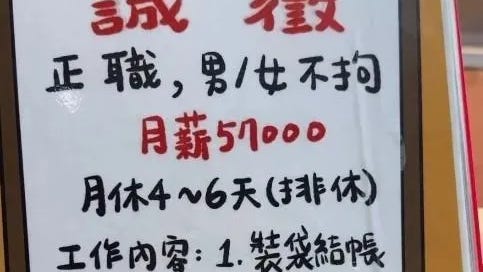 誠 徵
正職，男/女不拘
月薪57000
月休4~6天(排休)
工作內容：1.裝袋結帳